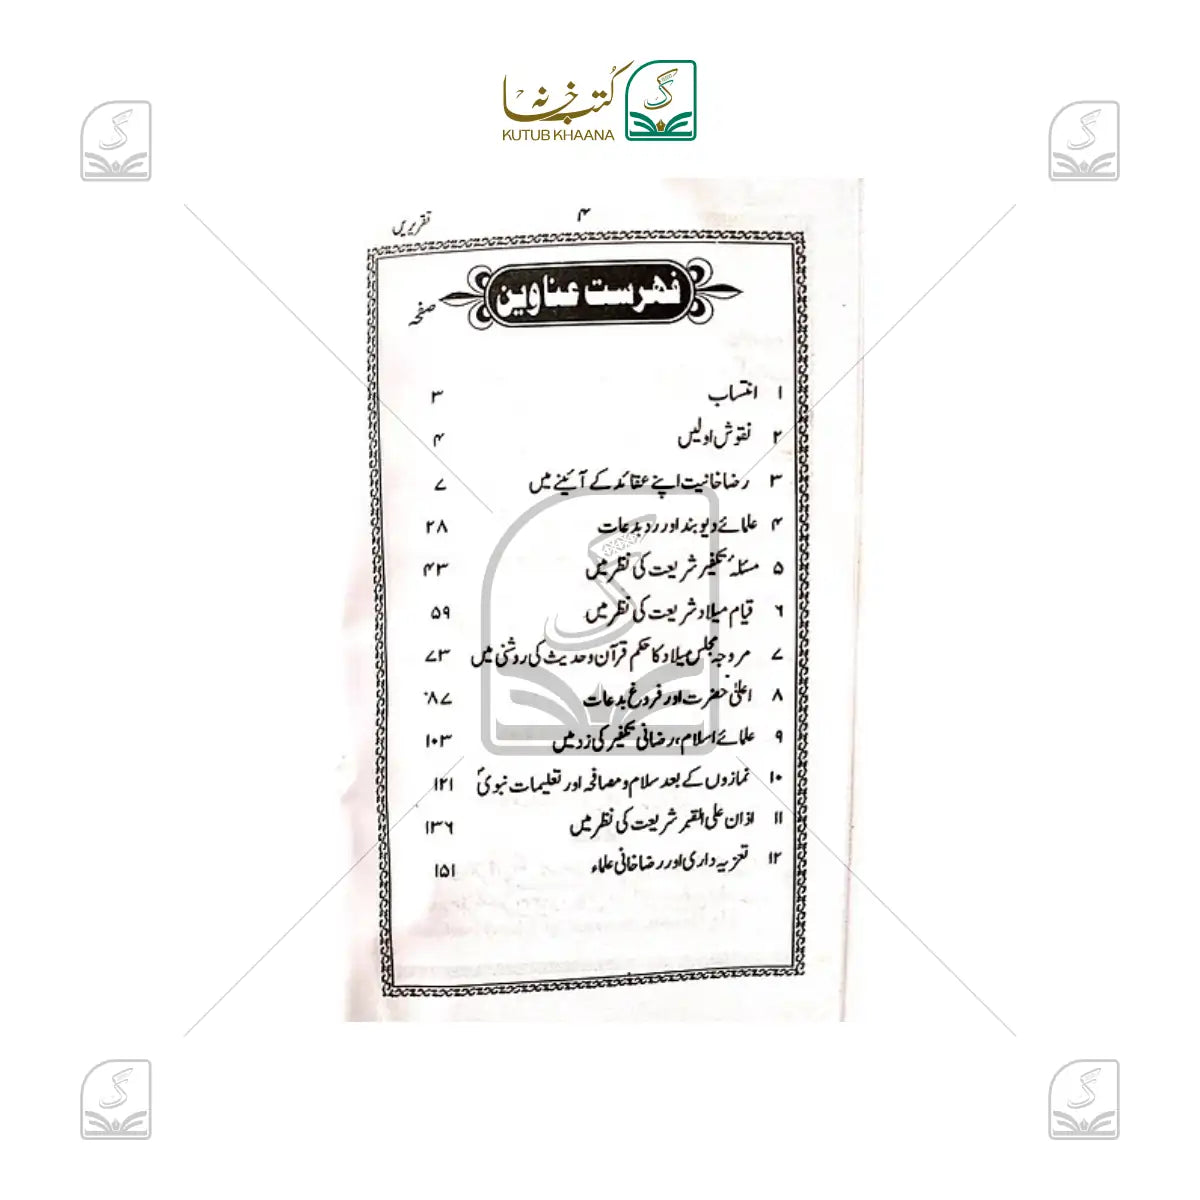 کتب خانہ
KUTUB KHAANA
۴
تقریریں
فہرست عناوین
صفحہ
۱ انتساب ۳
۲ نقوش اولیں ۴
۳ رضاخانیت اپنے عقائد کے آئینے میں ۷
۴ علمائے دیوبند اور رد بدعات ۲۸
۵ مسئلۂ تکفیر شریعت کی نظر میں ۴۳
۶ قیام میلاد شریعت کی نظر میں ۵۹
۷ مروجہ مجلس میلاد کا حکم قرآن و حدیث کی روشنی میں ۷۳
۸ اعلیٰ حضرت اور فروغ بدعات ۸۷
۹ علمائے اسلام، رضائی تکفیر کی زد میں ۱۰۳
۱۰ نمازوں کے بعد سلام و مصافحہ اور تعلیمات نبویؐ ۱۲۱
۱۱ اذان علی القبر شریعت کی نظر میں ۱۳۶
۱۲ تعزیہ داری اور رضاخانی علماء ۱۵۱